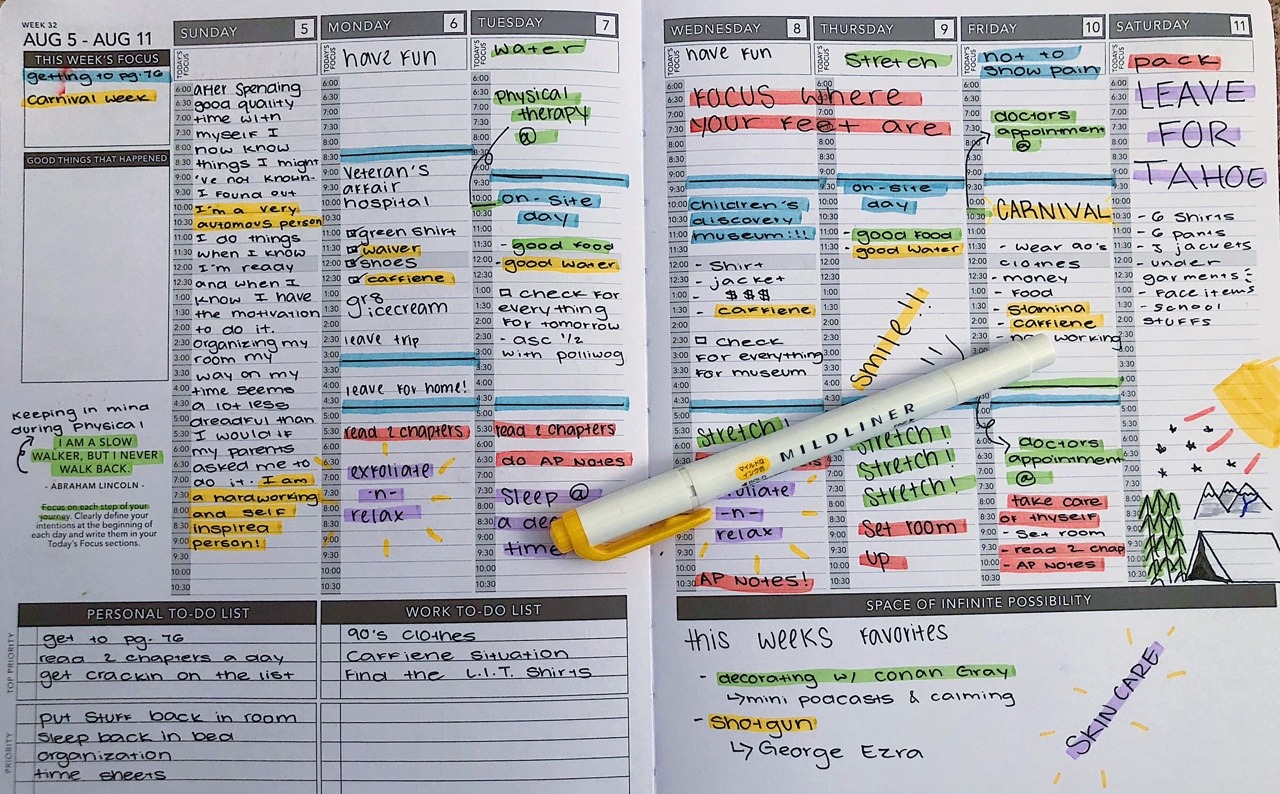 WEEK 32
AUG 5 - AUG 11
THIS WEEK'S FOCUS
getting to pg. 76
carnival week
GOOD THINGS THAT HAPPENED
keeping in mind
during physical
I AM A SLOW
WALKER, BUT I NEVER
WALK BACK.
- ABRAHAM LINCOLN -
Focus on each step of your
journey. Clearly define your
intentions at the beginning of
each day and write them in your
Today's Focus sections.
SUNDAY 5
TODAY'S FOCUS
After spending
good quality
time with
myself I
now know
things I might
've not known.
I found out
I'm a very
automovs person
I do things
when I know
I'm ready
and when I
know I have
the motivation
to do it.
organizing my
room my
way on my
time seems
a lot less
dreadful than
I would if
my parents
asked me to
do it. I am
a hardworking
and self
inspired
person!
MONDAY 6
TODAY'S FOCUS
have fun
Veteran's
affair
hospital
green shirt
waiver
shoes
caffiene
gr8
icecream
leave trip
leave for home!
read 2 chapters
exfoliate
-n-
relax
TUESDAY 7
TODAY'S FOCUS
water
physical
therapy
@
on-site
day
- good food
- good water
check for
everything
for tomorrow
- asc 1/2
with polliwog
read 2 chapters
do AP Notes
sleep @
a dec
time
WEDNESDAY 8
TODAY'S FOCUS
have fun
FOCUS where
your feet are
children's
discovery
museum!!!
- Shirt
- jacket
- $$$
- caffiene
check
for everything
for museum
stretch!
-n-
relax
AP Notes!
THURSDAY 9
TODAY'S FOCUS
Stretch
on-site
day
good food
good water
smile!!
stretch!
stretch!
stretch!
Set room
up
FRIDAY 10
TODAY'S FOCUS
not to
show pain
doctors
appointment
@
CARNIVAL
- wear 90's
clothes
- money
- food
- stamina
- caffiene
working
doctors
appointment
@
take care
of thyself
- Set room
- read 2 chap
- AP Notes
SATURDAY 11
TODAY'S FOCUS
pack
LEAVE
FOR
TAHOE
- 6 Shirts
- 6 pants
- 3 jackets
- under
garments
- face items
- school
stuffs
MILDLINER
PERSONAL TO-DO LIST
TOP PRIORITY
get to pg. 76
read 2 chapters a day
get crackin on the list
PRIORITY
put stuff back in room
sleep back in bed
organization
time sheets
WORK TO-DO LIST
90's clothes
Caffiene situation
Find the L.I.T. Shirts
SPACE OF INFINITE POSSIBILITY
this weeks favorites
- decorating w/ conan Gray
↳mini podcasts & calming
- Shotgun
↳George Ezra
SKIN CARE